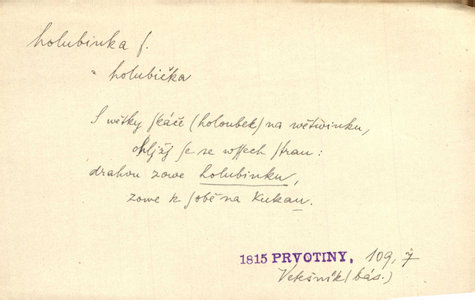 holubinka f.
= holubička
S wětky skáče (holoubek) na wětwinku,
ohljžj se se wssech stran:
drahou zowe holubinku,
zowe k sobě na kukau.
1815 PRVOTINY, 109, 7
Vetešník (bás.)